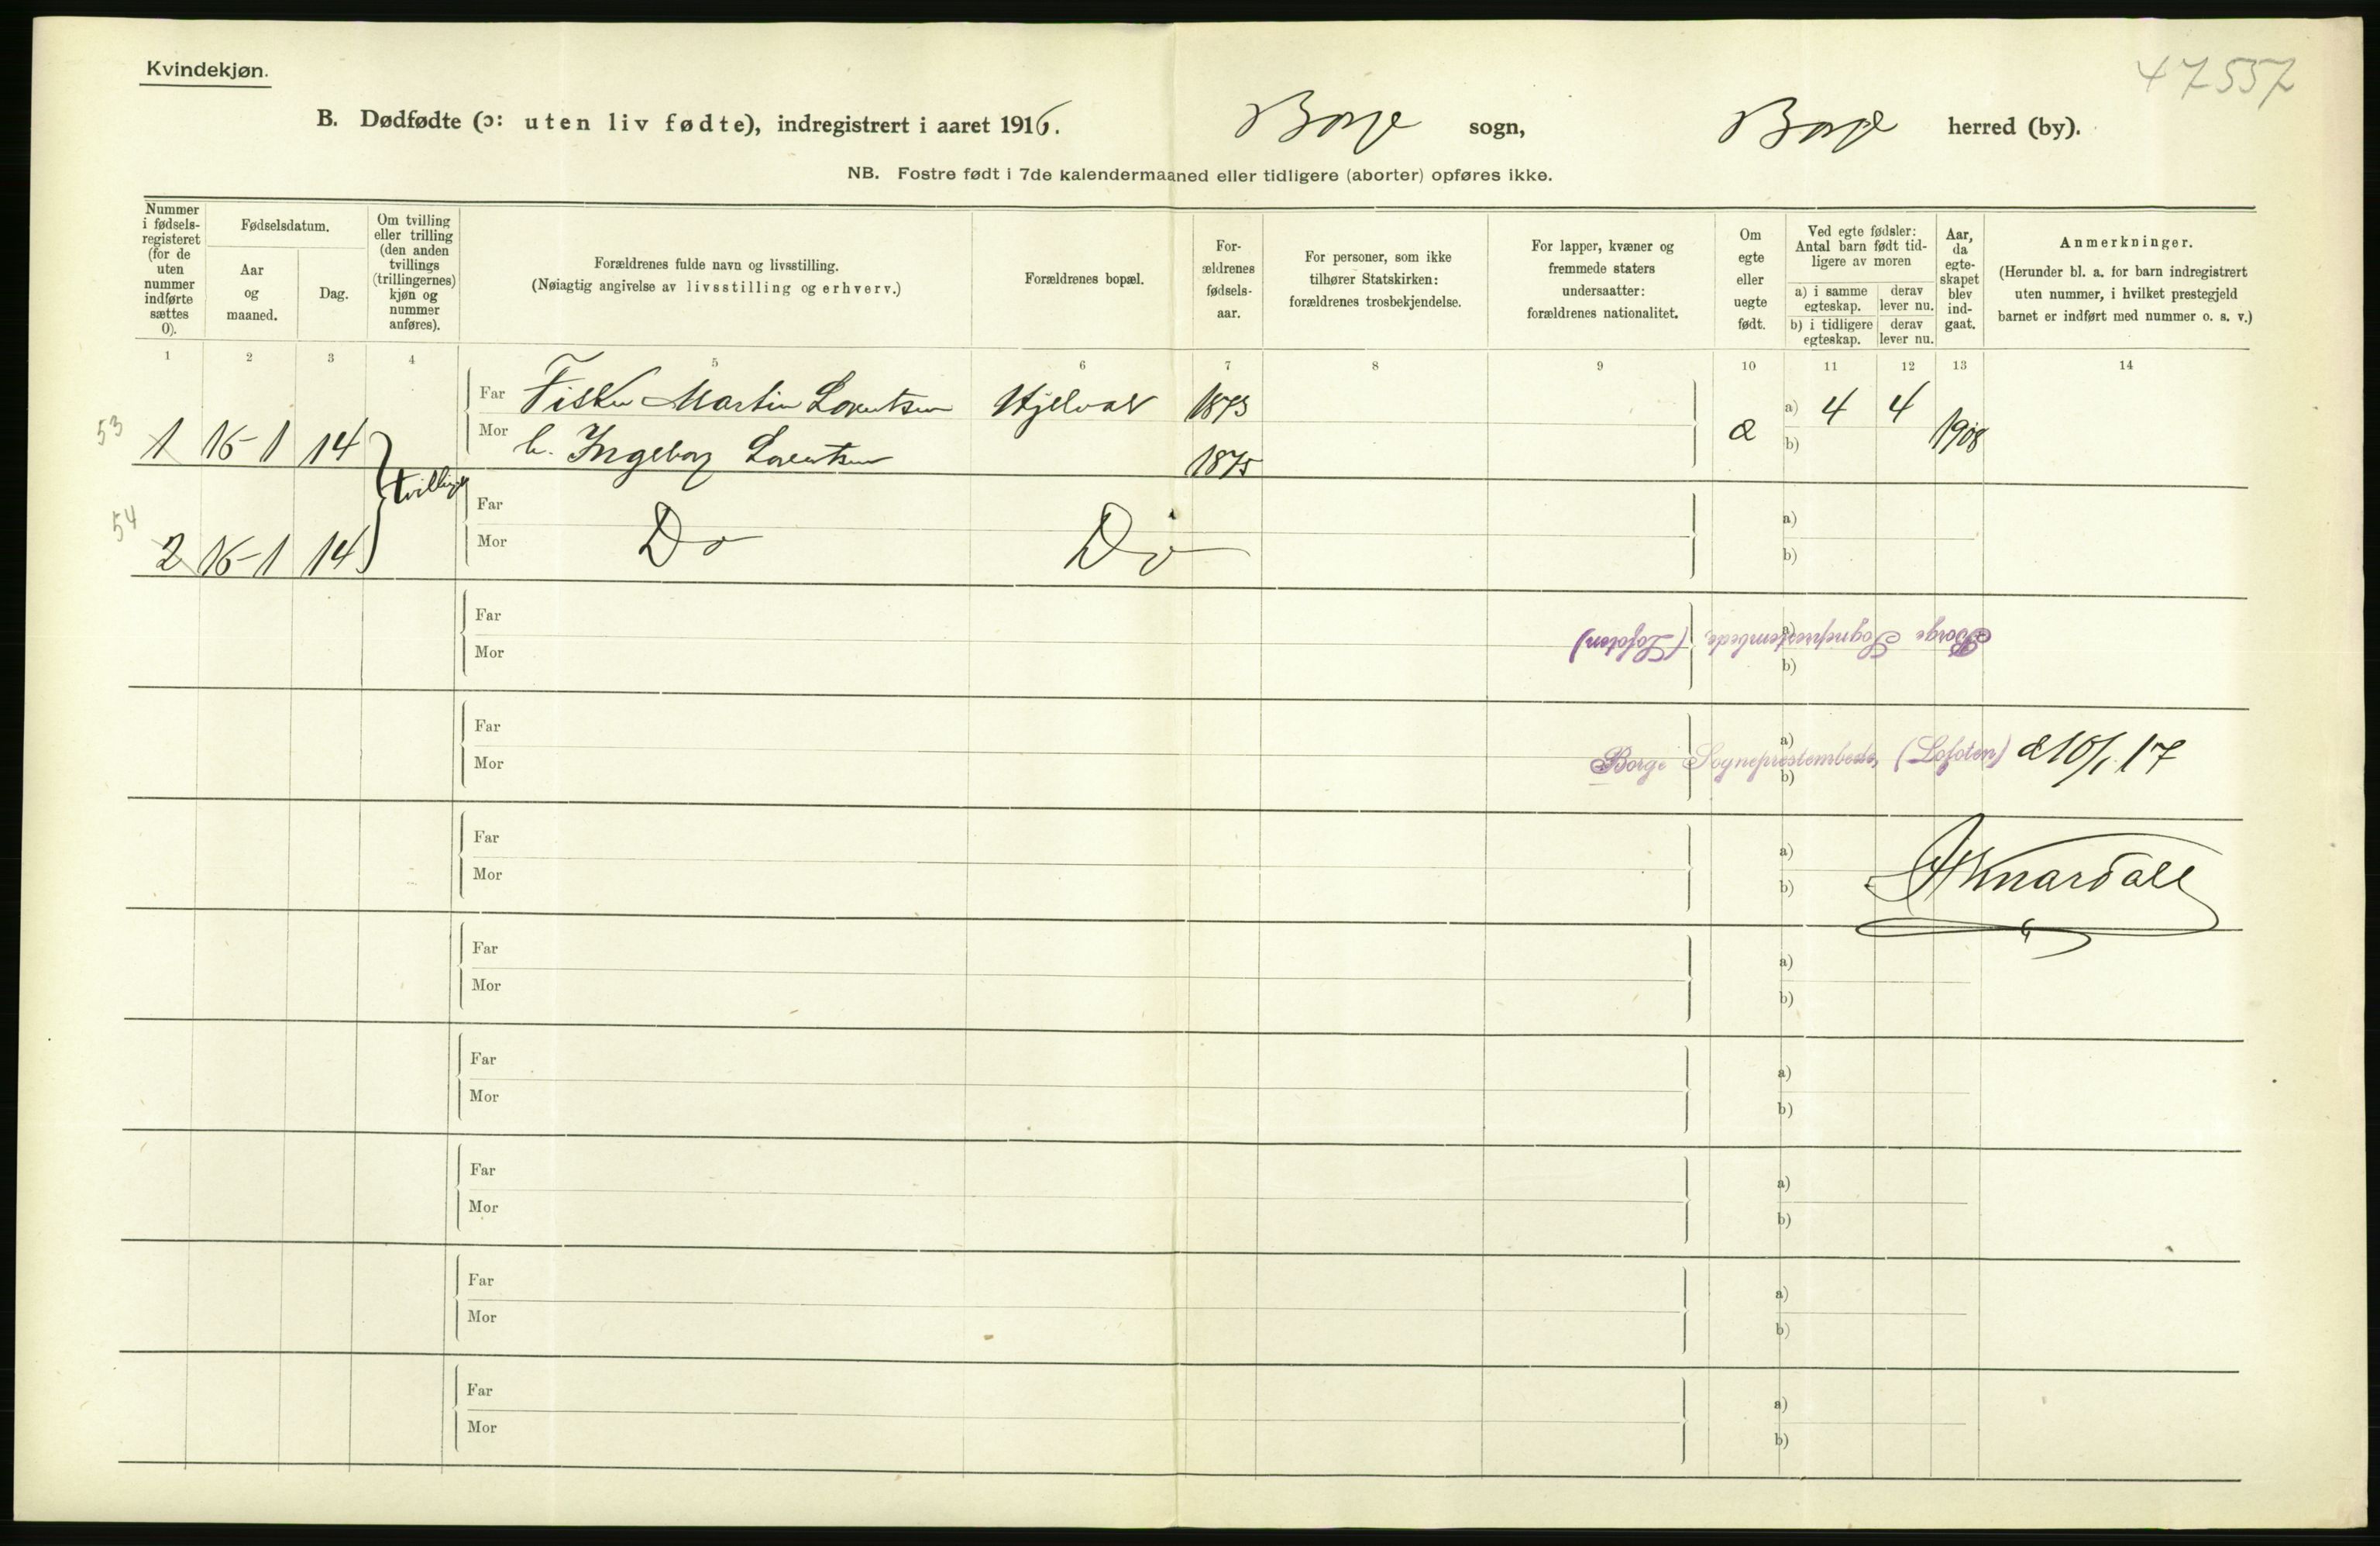 Kvindekjøn.
47557
B. Dødfødte (ɔ: uten liv fødte), indregistrert i aaret 1916. Borge sogn, Borge herred (by).
NB. Fostre født i 7de kalendermaaned eller tidligere (aborter) opføres ikke.
Nummer i fødsels-registeret (for de uten nummer indførte sættes 0).
Fødselsdatum.
Aar og maaned.
Dag.
Om tvilling eller trilling (den anden tvillings (trillingernes) kjøn og nummer anføres).
Forældrenes fulde navn og livsstilling.
(Nøiagtig angivelse av livsstilling og erhverv.)
Forældrenes bopæl.
For-ældrenes fødsels-aar.
For personer, som ikke tilhører Statskirken: forældrenes trosbekjendelse.
For lapper, kvæner og fremmede staters undersaatter: forældrenes nationalitet.
Om egte eller uegte født.
Ved egte fødsler: Antal barn født tid-ligere av moren
a) i samme egteskap.
derav lever nu.
b) i tidligere egteskap.
derav lever nu.
Aar, da egte-skapet blev ind-gaat.
Anmerkninger.
(Herunder bl. a. for barn indregistrert uten nummer, i hvilket prestegjeld barnet er indført med nummer o. s. v.)
1 2 3 4 5 6 7 8 9 10 11 12 13 14
Far Fisker Martin Lorentsen 1873 a) 4 4
53 1 16-1 14 Mor h. Ingeborg Lorentsen 1875 b) 1908
tvillinger
Far a)
54 2 16-1 14 Mor Do Do b)
Far a)
Borge Sogneprestembede, (Lofoten)
Mor b)
Far a)
Borge Sogneprestembede, (Lofoten) 10/1 17
Mor b)
Far a)
Mor b)
Far a)
Mor b)
Far a)
Mor b)
Far a)
Mor b)
Far a)
Mor b)
Far a)
Mor b)